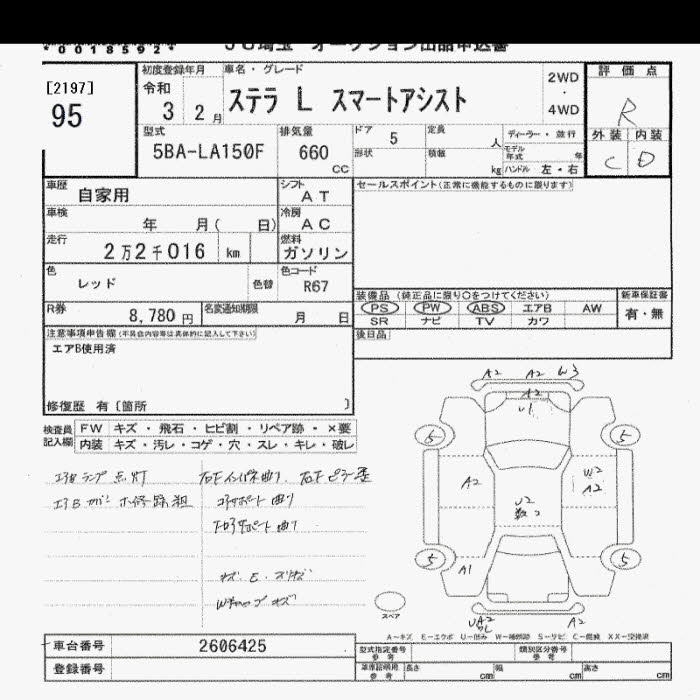 *0018592*
JU埼玉 オークション出品申込書
[2197]
95
初度登録年月
令和
3 2月
車名・グレード
ステラ L スマートアシスト
2WD
・
4WD
評価点
R
外装 内装
C D
型式
5BA-LA150F
排気量
660
CC
ドア 5
形状
定員 人
積載 kg
ディーラー・並行
モデル年式 年
ハンドル 左・右
車歴
自家用
シフト
AT
車検
年 月( 日)
冷房
AC
走行
2万2千016 km
燃料
ガソリン
色
レッド
色替
色コード
R67
R券
8,780円
名変通知期限
月 日
セールスポイント(正常に機能するものに限ります)
装備品 (純正品に限り○をつけてください)
PS PW ABS エアB AW
SR ナビ TV カワ
新車保証書
有・無
後日品
注意事項申告欄(不具合内容等は具体的に記入して下さい)
エアB使用済
修復歴 有〔箇所 〕
検査員記入欄
FW キズ・飛石・ヒビ割・リペア跡・×要
内装 キズ・汚レ・コゲ・穴・スレ・キレ・破レ
エアB ランプ 点灯
コアサポート 曲り
キズ・E・スリキズ
A2 A2 W3
A2
U1
6 6
A2
U2
A2
U2
数コ
6 6
A1
スペア
UA2
A2
A-キズ E-エクボ U-凹み W-補修跡 S-サビ C-腐蝕 XX-交換済
車台番号
2606425
登録番号
型式指定番号
参考
類別区分番号
参考
車庫証明用
参考
長さ cm
幅 cm
高さ cm